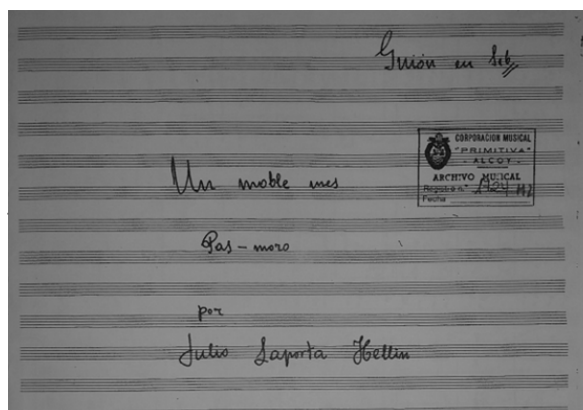 Guión en Sib
CORPORACION MUSICAL
"PRIMITIVA"
- ALCOY -
ARCHIVO MUSICAL
Registro n.º 1924
Fecha
Un moble mes
Pas-moro
por
Julio Laporta Hellin